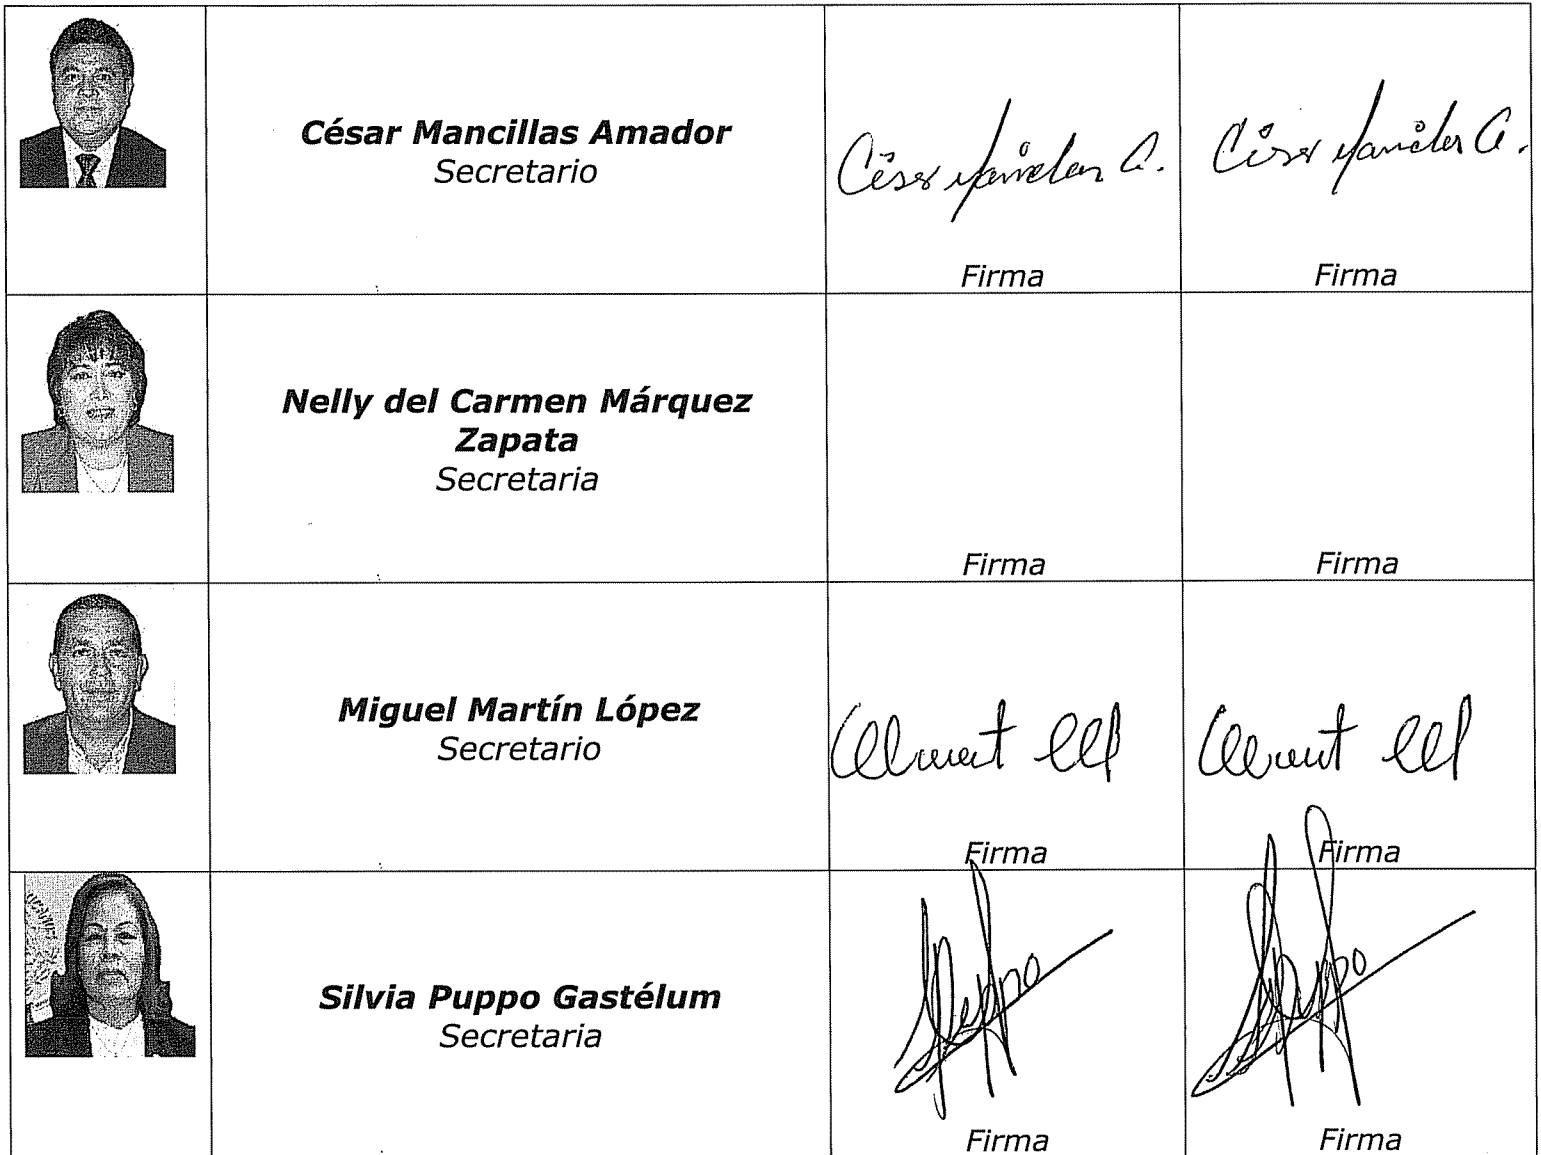 César Mancillas Amador
Secretario
César Mancillas A.
César Mancillas A.
Firma
Firma
Nelly del Carmen Márquez
Zapata
Secretaria
Firma
Firma
Miguel Martín López
Secretario
Firma
Firma
Silvia Puppo Gastélum
Secretaria
Puppo
Puppo
Firma
Firma